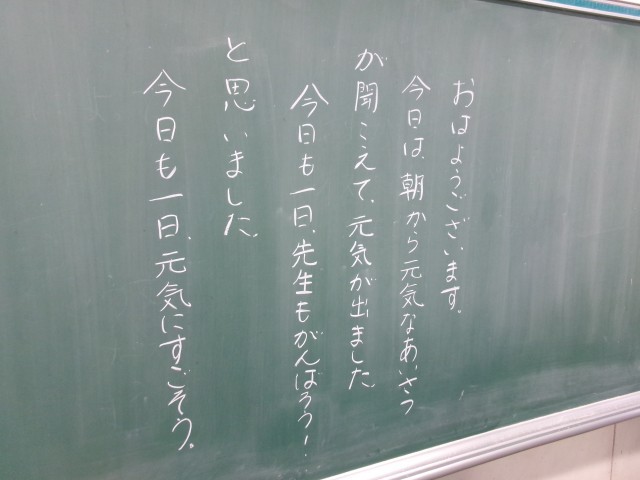 おはようございます。
今日は、朝から元気なあいさつ
が聞こえて、元気が出ました。
今日も一日、先生もがんばろう！
と思いました。
今日も一日、元気にすごそう。